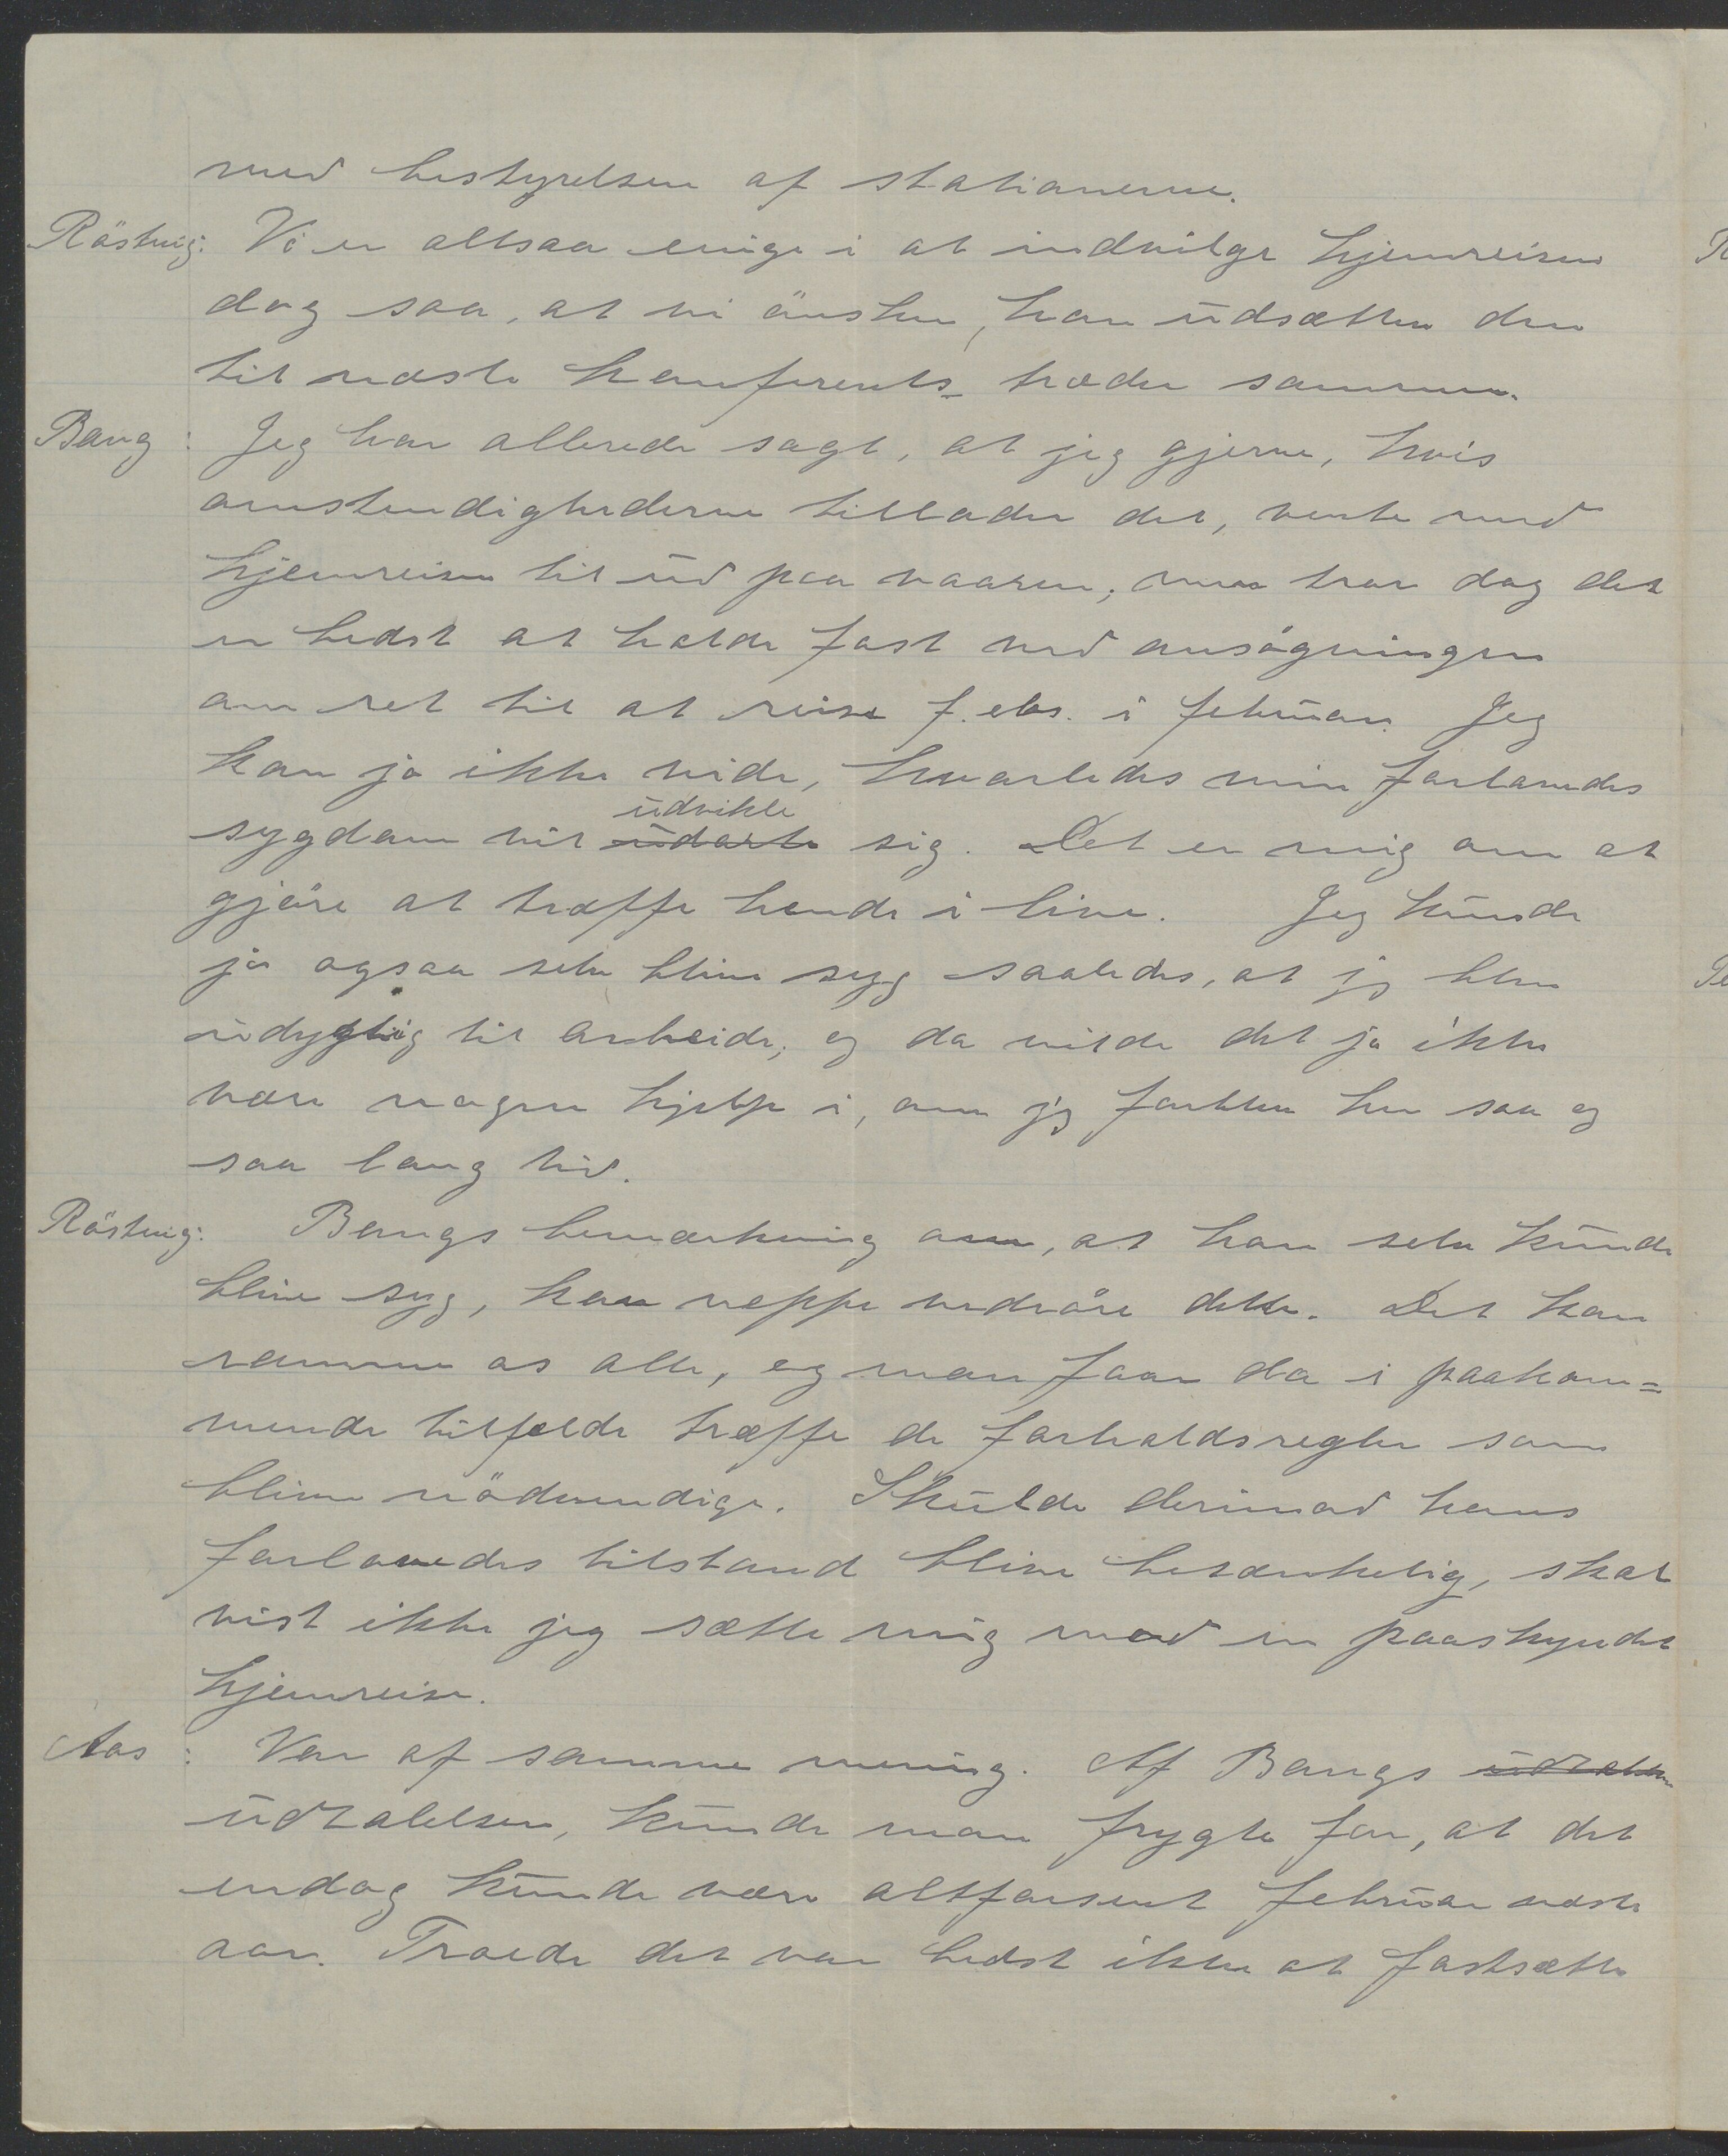 med bestyrelsen af stationerne.
Röstvig: Vi er altsaa enige i at indvilge hjemreisen
dog saa, at vi önsker, han udsætter den
til næste konferents træder sammen.
Bang: Jeg har allerede sagt, at jeg gjerne, hvis
omstendighederne tillader det, vente med
hjemreisen til ud paa vaaren; men tror dog det
er bedst at holde fast ved ansögningen
om ret til at reise f.eks. i februar. Jeg
kan jo ikke vide, hvorledes min forlovedes
udvikle
sygdom vil udarte sig. Det er mig om at
gjöre at træffe hende i live. Jeg kunde
jo ogsaa selv blive syg saaledes, at jeg blev
udygtig til arbeide, og da vilde det jo ikke
være nogen hjelp i, om jeg fortblev her saa og
saa lang tid.
Röstvig: Bangs bemærkning om, at han selv kunde
blive syg, kan neppe vedröre dette. Det kan
ramme os alle, og man faar da i paakom=
mende tilfælde træffe de forholdsregler som
bliver nödvendige. Skulde derimod hans
forlovedes tilstand blive betænkelig, skal
vist ikke jeg sætte mig mod en paaskyndet
hjemreise.
Aas: Var af samme mening. Af Bangs
udtalelser, kunde man frygte for, at det
endog kunde være altforsent februar næste
aar. Troede det var bedst ikke at fastsætte
R
Pe